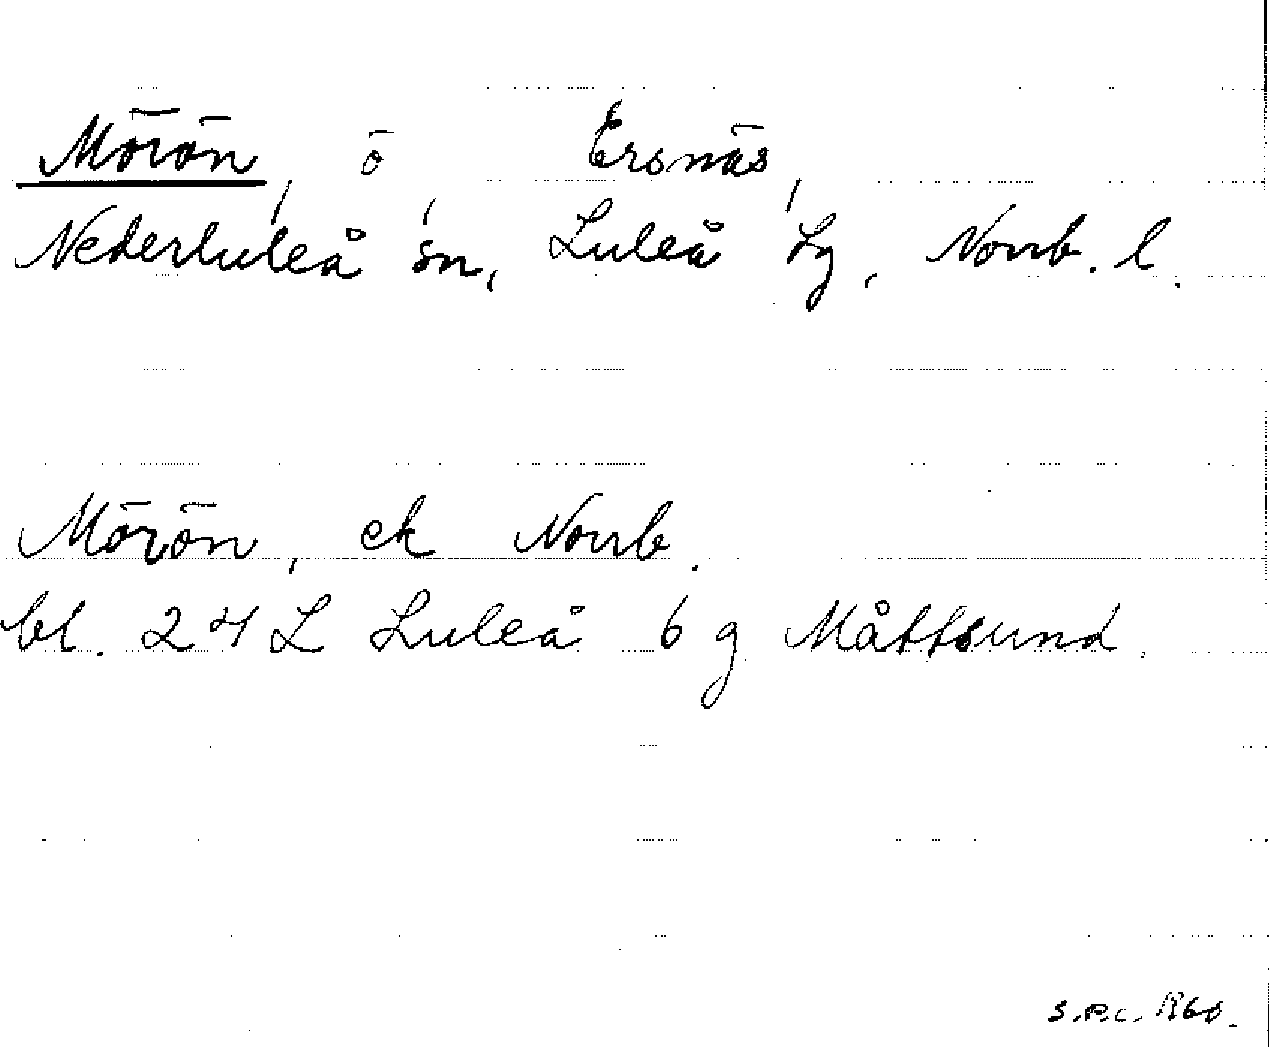 Mörön, ö, Ersnäs,
Nederluleå sn, Luleå tg, Norrb. l.
Mörön, ek Norrb.
bl. 24 L Luleå 6 g Måttsund.